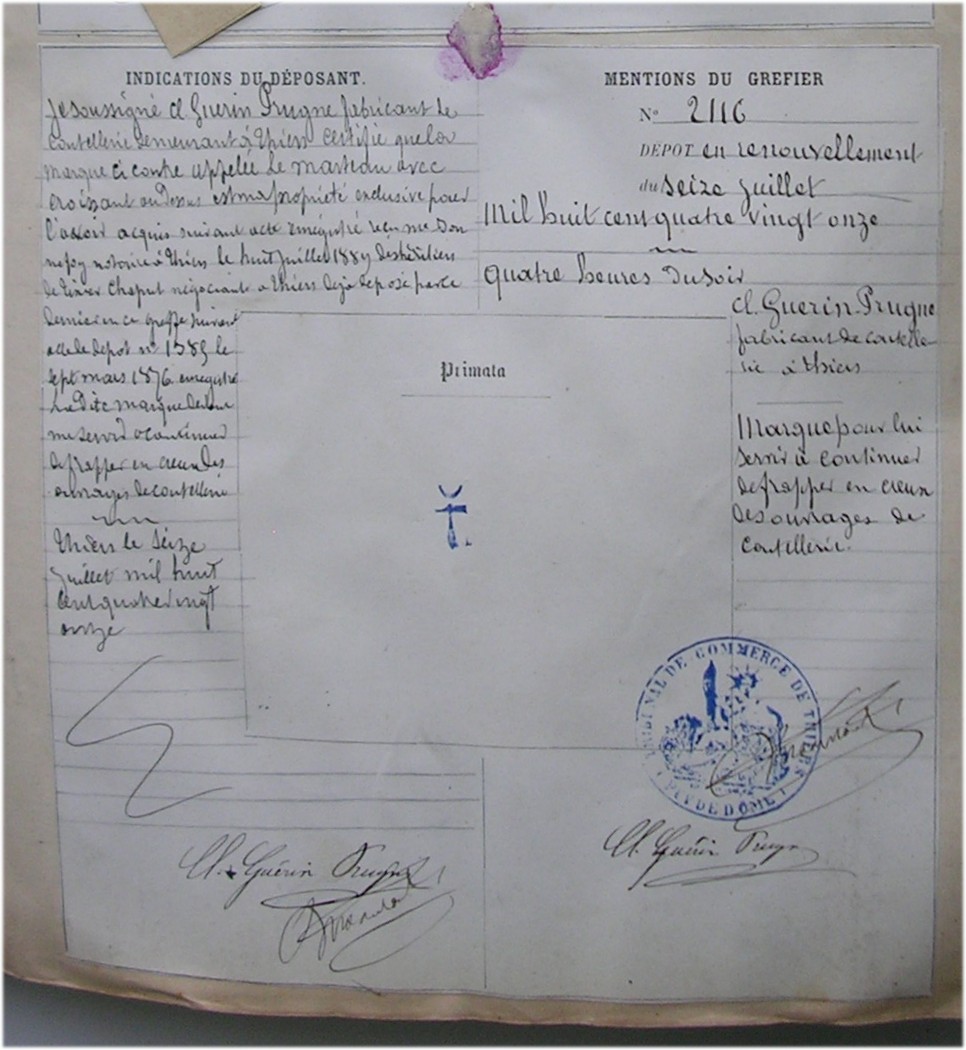 INDICATIONS DU DÉPOSANT.
Je soussigné Cl Guerin Prugne fabricant de
coutellerie demeurant à Thiers certifie que la
marque ci contre appelée Le marteau avec
croissant au dessus est ma propriété exclusive pour
l'avoir acquis suivant acte enregistré reçu me Don
nefoy notaire à Thiers le huit juillet 1889 des héritiers
de Chaput négociant a Thiers déjà déposé par ce
dernier en ce greffe suivant
acte de depot no 1385 le
sept mars 1876 enregistré
La Dite marque
me servir a continuer
de frapper en creux des
ouvrages de coutellerie
Thiers le Seize
Juillet mil huit
cent quatre vingt
onze
MENTIONS DU GREFIER
No 2116
DÉPOT en renouvellement
du Seize Juillet
Mil huit cent quatre vingt onze
Quatre heures Du Soir
Cl. Guerin Prugne
fabricant de coutelle
rie à Thiers
Marque pour lui
servir à continuer
de frapper en creux
Des ouvrages de
coutellerie.
Primata
TRIBUNAL DE COMMERCE DE THIERS
PUY DE DOME
Cl. Guérin Prugne
Cl. Guérin Prugne